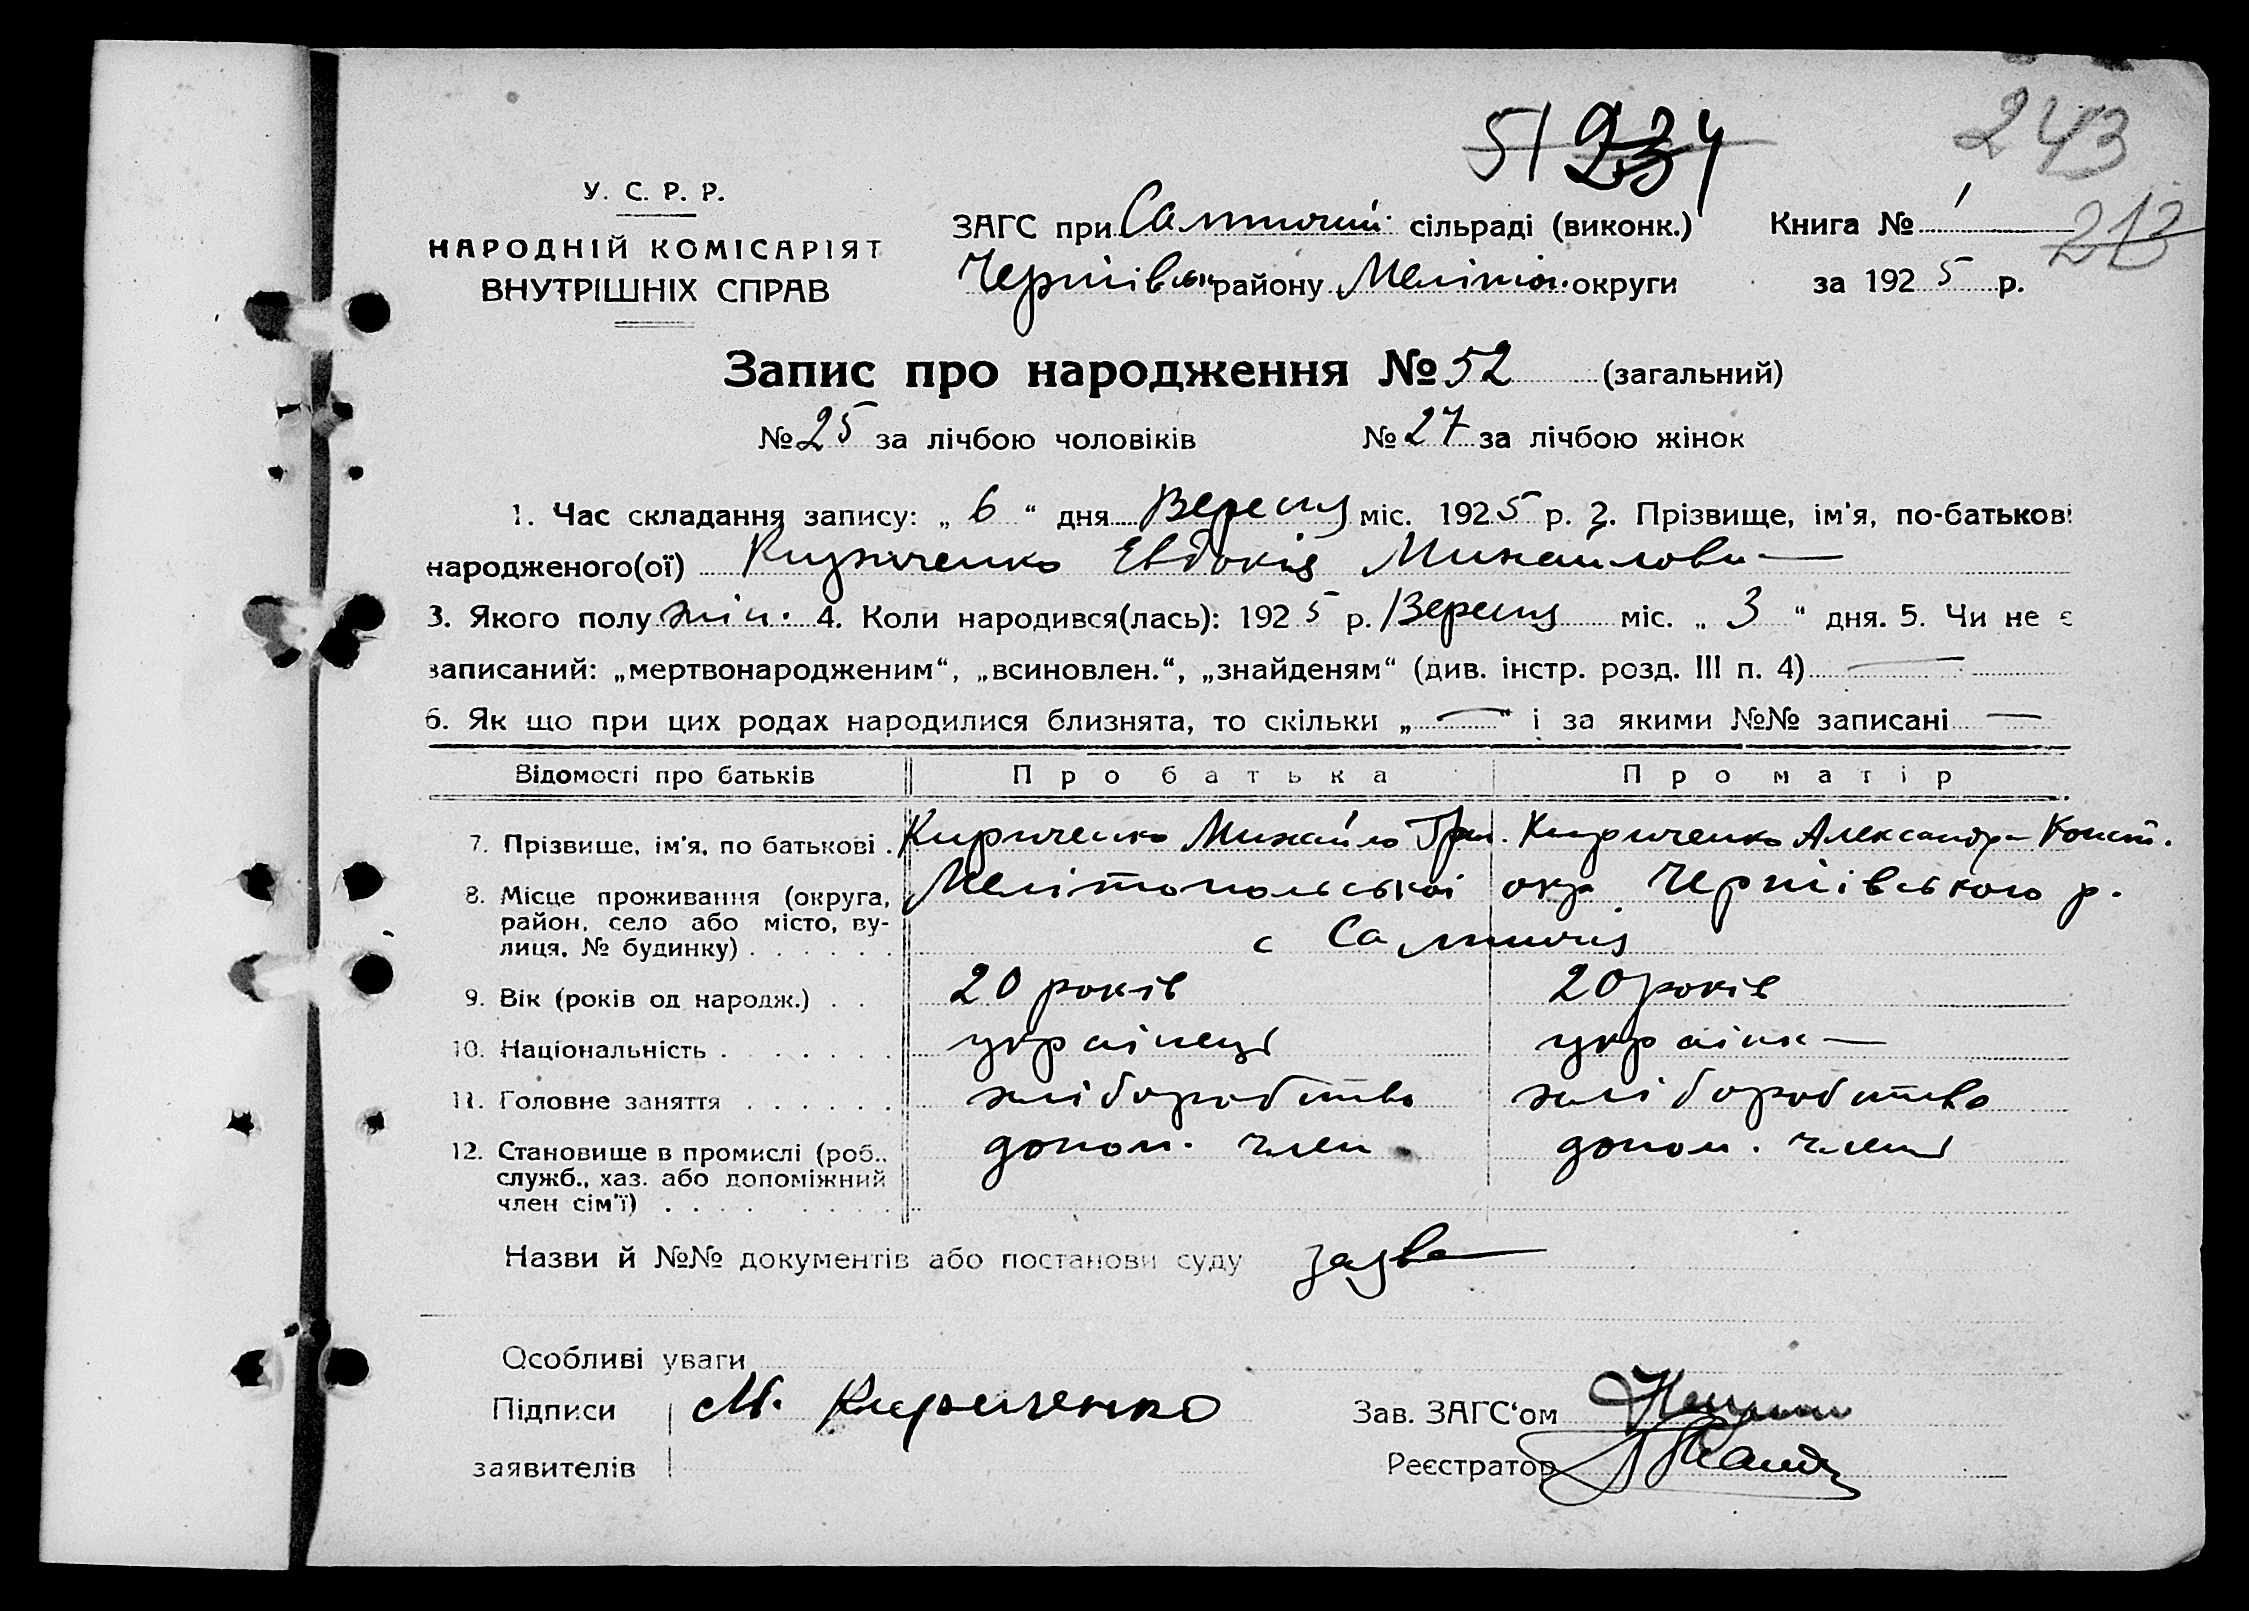 51 234
243
213
У. С. Р. Р.
НАРОДНІЙ КОМІСАРІЯТ
ВНУТРІШНІХ СПРАВ
ЗАГС при Салтичий сільраді (виконк.) Книга № 1
Чернівськ району Мелітоп. округи за 1925 р.
Запис про народження № 52 (загальний)
№ 25 за лічбою чоловіків № 27 за лічбою жінок
1. Час складання запису: „ 6 “ дня Вересня міс. 1925 р. 2. Прізвище, ім'я, по-батькові
народженого(ої) Кириченко Евдокія Михайловна
3. Якого полу жін. 4. Коли народився(лась): 1925 р. Вересня міс. „ 3 “ дня. 5. Чи не є
записаний: „мертвонародженим“, „всиновлен.“, „знайденям“ (див. інстр. розд. III п. 4) —
6. Як що при цих родах народилися близнята, то скільки „ — “ і за якими №№ записані —
Відомості про батьків Про батька Про матір
7. Прізвище, ім'я, по батькові . Кириченко Михайло Гри. Кириченко Александра Конст.
8. Місце проживання (округа, район, село або місто, вулиця, № будинку) . . . . . . Мелітопольської окр. Чернівського р.
с Салтичія
9. Вік (років од народж.) . . 20 років 20 років
10. Національність . . . . . . . українець українка
11. Головне заняття . . . . . . хліборобство хліборобство
12. Становище в промислі (роб., служб., хаз. або допоміжний член сім'ї) . . . . . . . . допом. член допом. член
Назви й №№ документів або постанови суду заява
Особливі уваги
Підписи М. Кириченко Зав. ЗАГС‘ом
заявителів Реєстратор